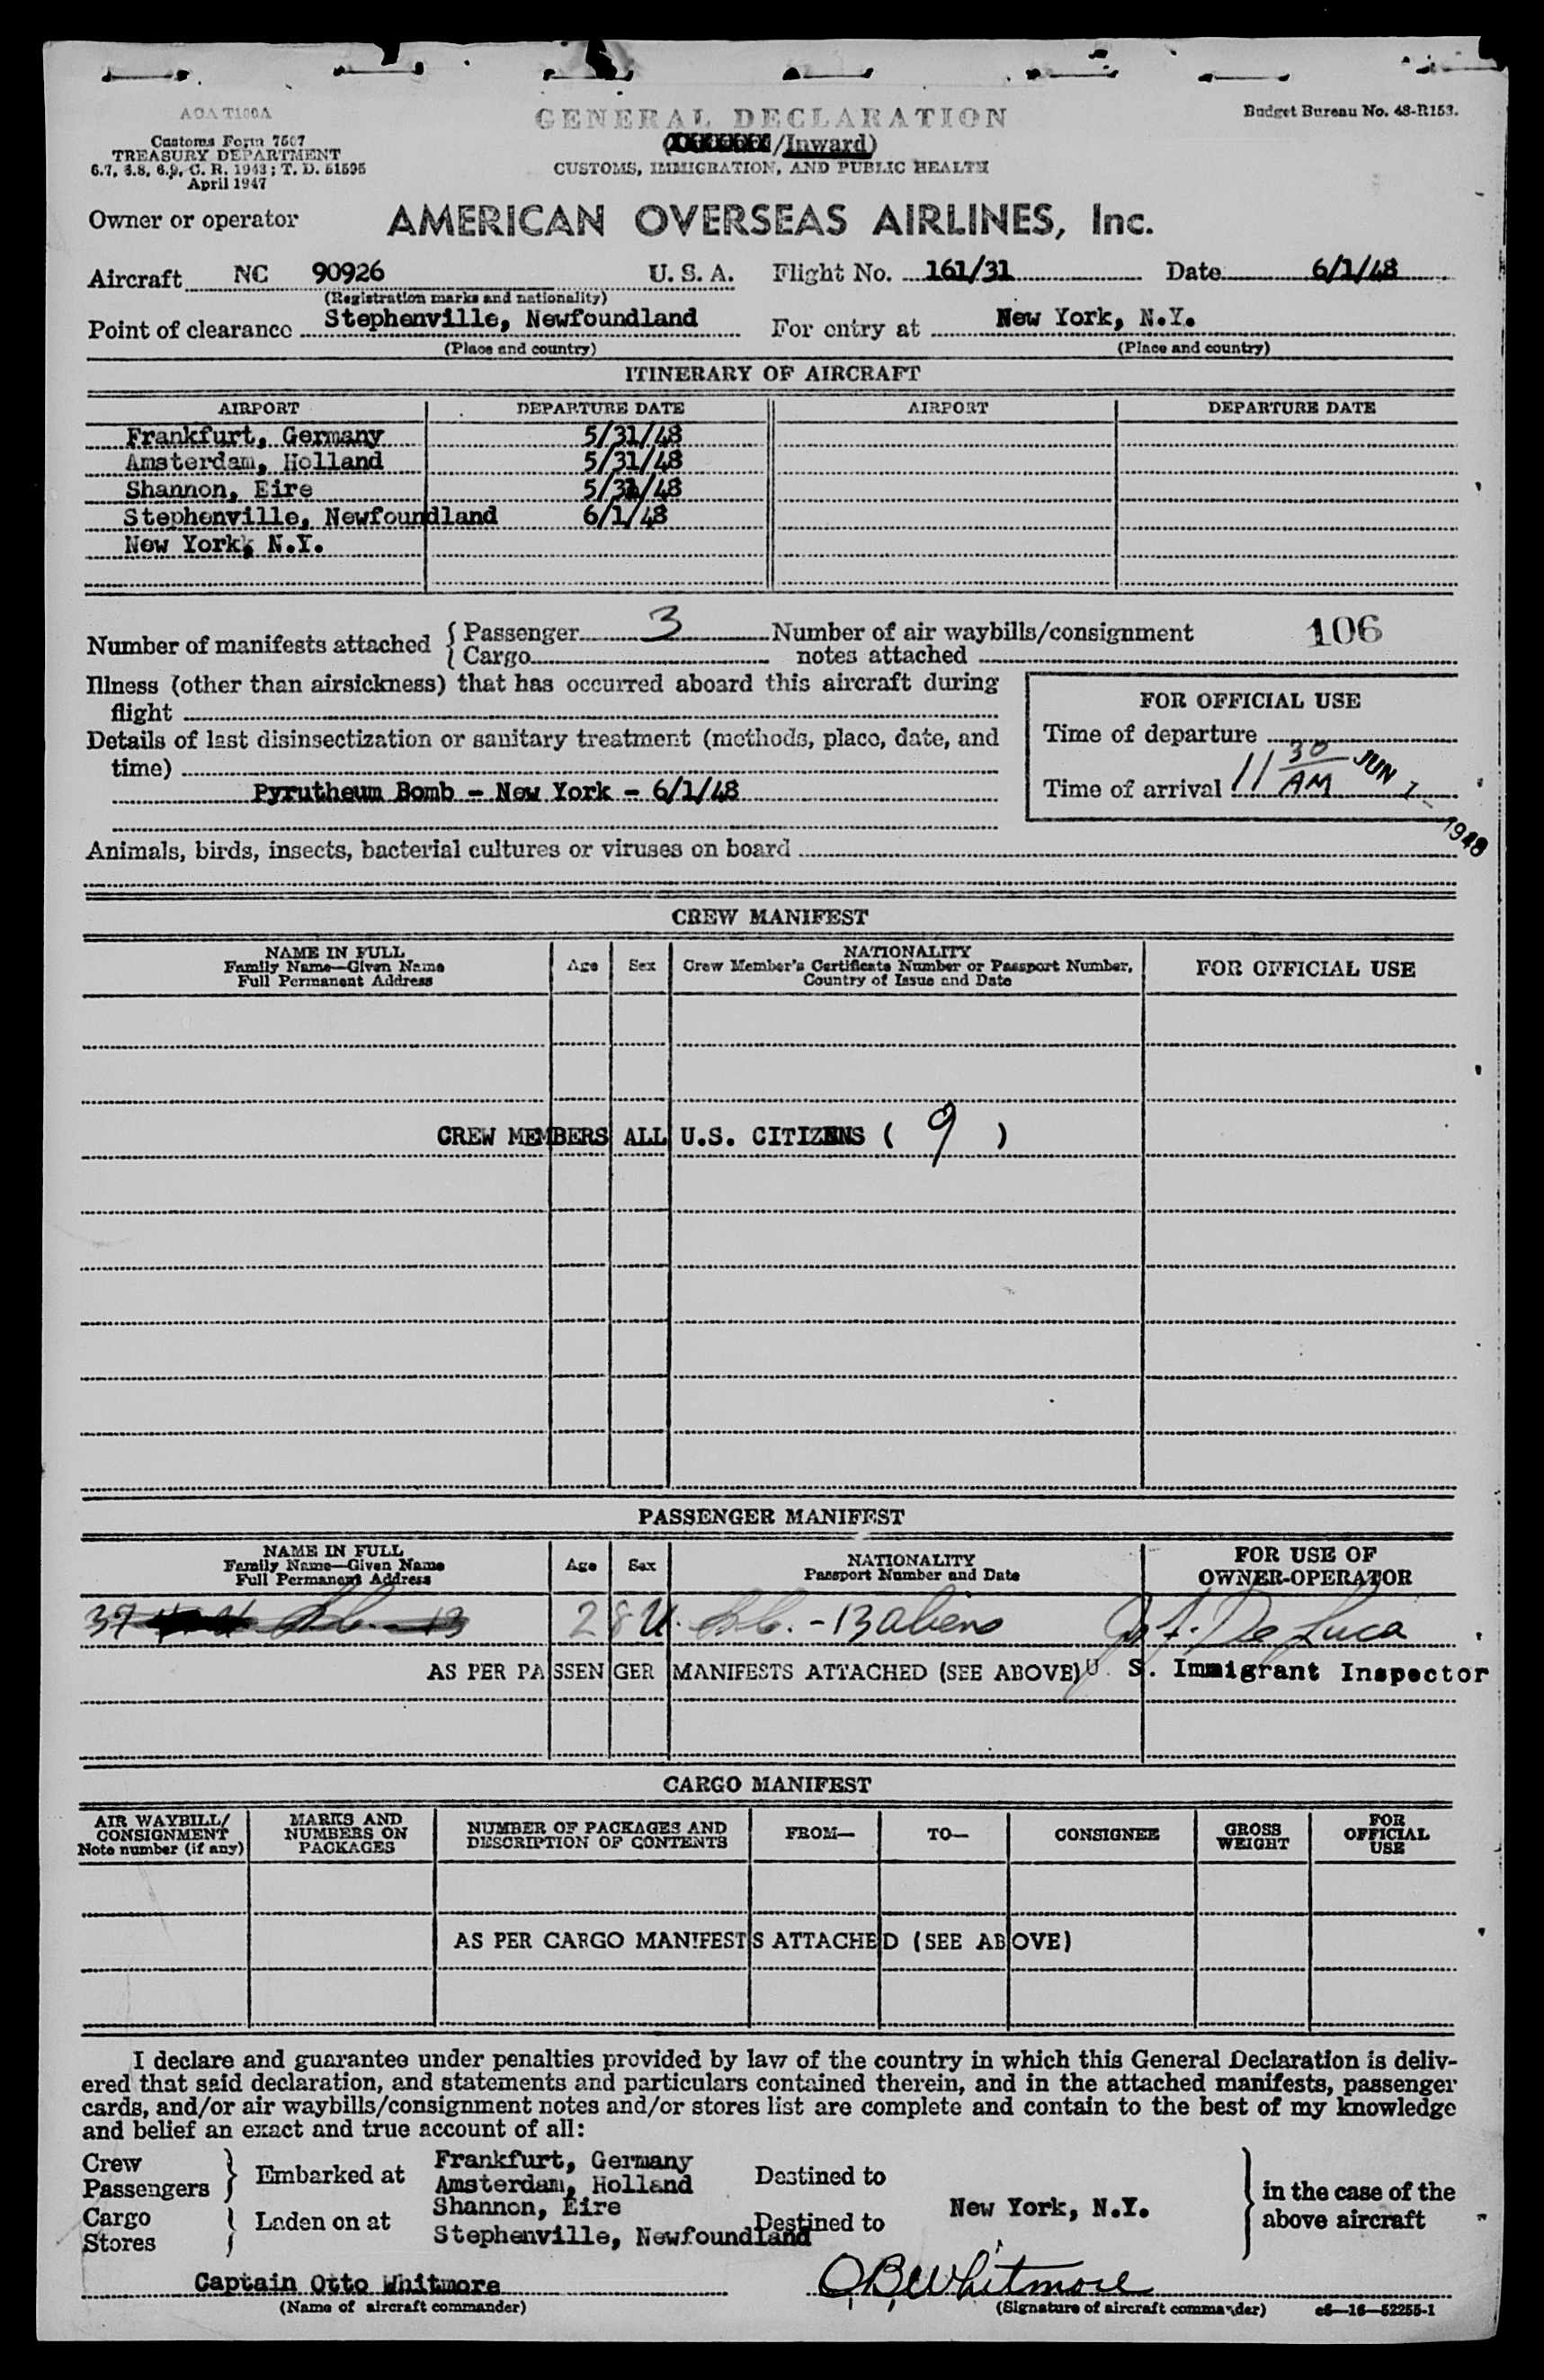 AOA T100A
GENERAL DECLARATION
Budget Bureau No. 48-R153.
Customs Form 7507
TREASURY DEPARTMENT
6.7, 6.8, 6.9, C. R. 1943; T. D. 51595
April 1947
/Inward)
CUSTOMS, IMMIGRATION, AND PUBLIC HEALTH
Owner or operator AMERICAN OVERSEAS AIRLINES, Inc.
Aircraft NC 90926 U. S. A. Flight No. 161/31 Date 6/1/48
(Registration marks and nationality)
Point of clearance Stephenville, Newfoundland For entry at New York, N.Y.
(Place and country) (Place and country)
ITINERARY OF AIRCRAFT
AIRPORT DEPARTURE DATE AIRPORT DEPARTURE DATE
Frankfurt, Germany 5/31/48
Amsterdam, Holland 5/31/48
Shannon, Eire 5/31/48
Stephenville, Newfoundland 6/1/48
New York, N.Y.
Number of manifests attached { Passenger 3 Number of air waybills/consignment 106
Cargo notes attached
Illness (other than airsickness) that has occurred aboard this aircraft during
flight
FOR OFFICIAL USE
Details of last disinsectization or sanitary treatment (methods, place, date, and
time)
Time of departure
Pyrutheum Bomb - New York - 6/1/48
Time of arrival 11 30 AM JUN 1 - 1948
Animals, birds, insects, bacterial cultures or viruses on board
CREW MANIFEST
NAME IN FULL
Family Name—Given Name
Full Permanent Address
Age Sex
NATIONALITY
Crew Member's Certificate Number or Passport Number,
Country of Issue and Date
FOR OFFICIAL USE
CREW MEMBERS ALL U.S. CITIZENS ( 9 )
PASSENGER MANIFEST
NAME IN FULL
Family Name—Given Name
Full Permanent Address
Age Sex
NATIONALITY
Passport Number and Date
FOR USE OF
OWNER-OPERATOR
37 13 28 U. - 13 aliens De Luca
AS PER PASSENGER MANIFESTS ATTACHED (SEE ABOVE) U. S. Immigrant Inspector
CARGO MANIFEST
AIR WAYBILL/
CONSIGNMENT
Note number (if any)
MARKS AND
NUMBERS ON
PACKAGES
NUMBER OF PACKAGES AND
DESCRIPTION OF CONTENTS
FROM—
TO—
CONSIGNEE
GROSS
WEIGHT
FOR
OFFICIAL
USE
AS PER CARGO MANIFESTS ATTACHED (SEE ABOVE)
I declare and guarantee under penalties provided by law of the country in which this General Declaration is deliv-
ered that said declaration, and statements and particulars contained therein, and in the attached manifests, passenger
cards, and/or air waybills/consignment notes and/or stores list are complete and contain to the best of my knowledge
and belief an exact and true account of all:
Crew
Passengers } Embarked at
Cargo
Stores } Laden on at
Frankfurt, Germany
Amsterdam, Holland
Shannon, Eire
Stephenville, Newfoundland
Destined to
Destined to
New York, N.Y.
in the case of the
above aircraft
Captain Otto Whitmore O.B. Whitmore
(Name of aircraft commander) (Signature of aircraft commander) c6—16—52255-1